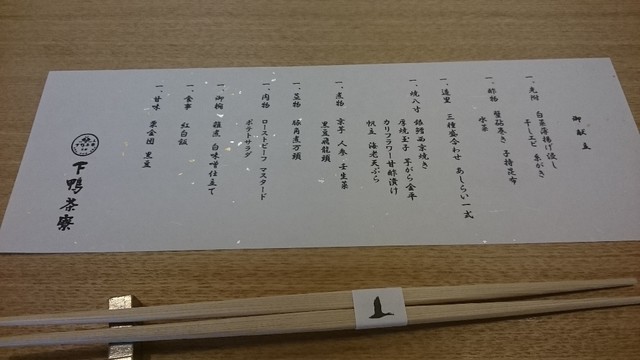 御献立
一、先附 白茎薄揚げ浸し
干しエビ 糸がき
一、酢物 蟹砧巻き 子持昆布
水菜
一、造里 三種盛合わせ あしらい一式
一、焼八寸 銀鱈西京焼き
厚焼玉子 芋がら金平
カリフラワー甘酢漬け
帆立 海老天ぷら
一、煮物 京芋 人参 壬生菜
黒豆飛龍頭
一、蒸物 豚角煮万頭
一、肉物 ローストビーフ マスタード
ポテトサラダ
一、御椀 雑煮 白味噌仕立て
一、食事 紅白飯
一、甘味 栗金団 黒豆
下鴨茶寮